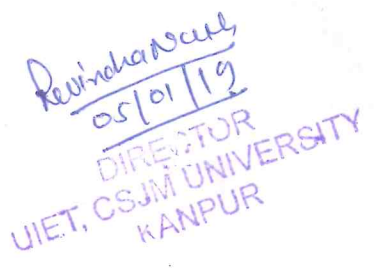 RavindhaNath
05/01/19
DIRECTOR
UIET, CSJM UNIVERSITY
KANPUR